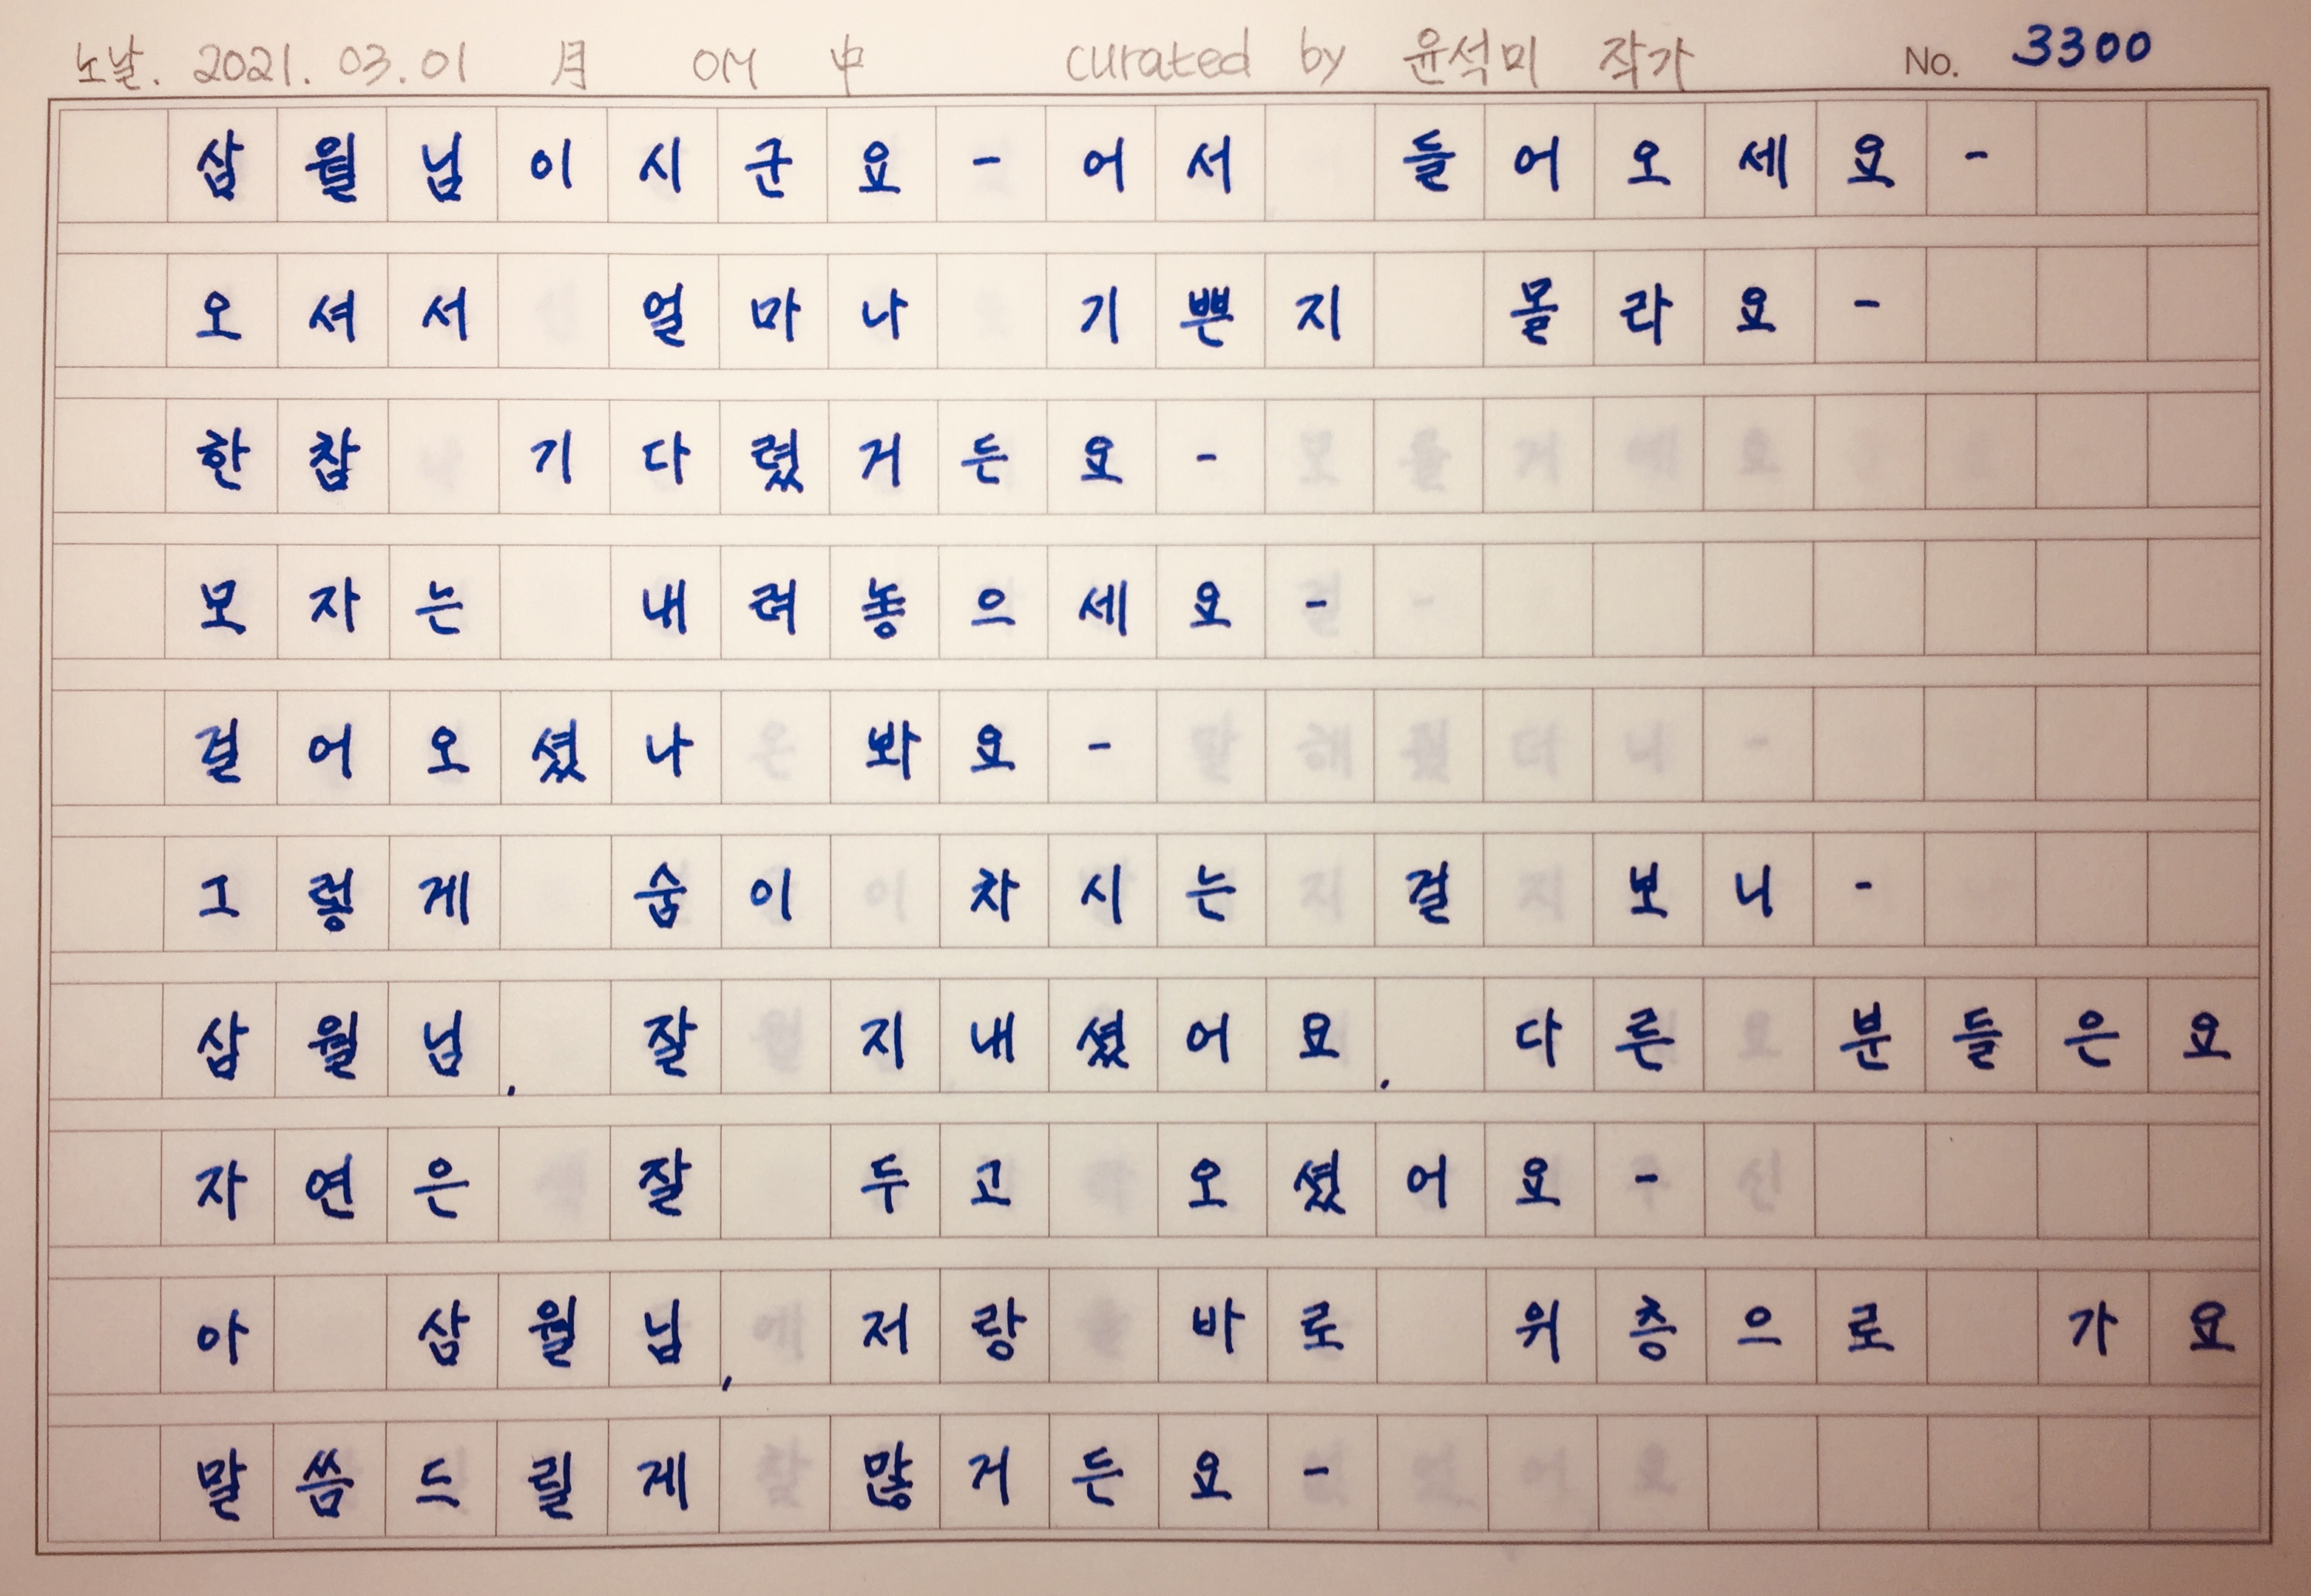 노날. 2021. 03. 01 月 OM 中 curated by 윤석미 작가 No. 3300
삼월님이시군요- 어서 들어오세요-
오셔서 얼마나 기쁜지 몰라요-
한참 기다렸거든요-
모자는 내려놓으세요-
걸어오셨나 봐요-
그렇게 숨이 차시는 걸 보니-
삼월님, 잘 지내셨어요, 다른 분들은요
자연은 잘 두고 오셨어요-
아 삼월님, 저랑 바로 위층으로 가요
말씀드릴게 많거든요-